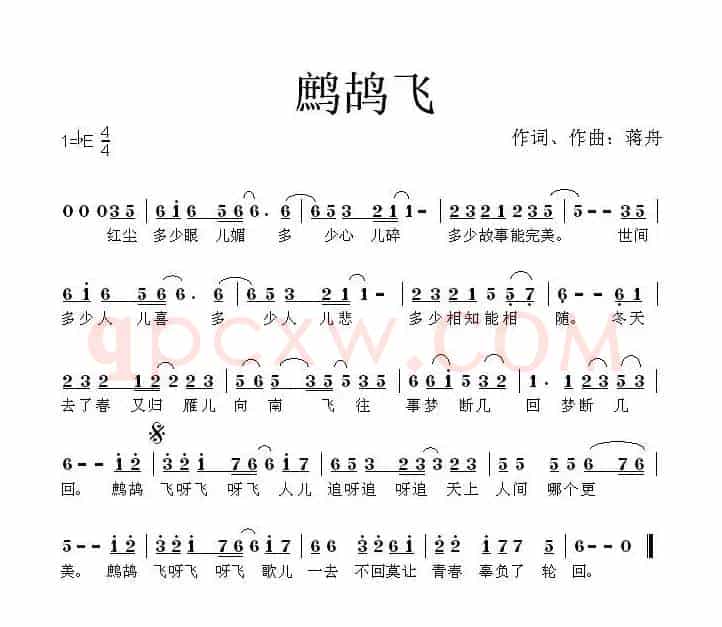 鹧鸪飞
1=♭E 4/4
作词、作曲：蒋舟
0 0 0 3 5 | 6 i 6 5 6 6 · 6 | 6 5 3 2 1 1 - | 2 3 2 1 2 3 5 | 5 - - 3 5 |
红尘 多少眼 儿媚 多 少心 儿碎 多少故事能完美。 世间
6 i 6 5 6 6 · 6 | 6 5 3 2 1 1 - | 2 3 2 5 5 7 | 6 - - 6 1 |
多少人 儿喜 多 少人 儿悲 多少相知能相 随。 冬天
qpcxw.COM
2 3 2 1 2 2 2 3 | 5 6 5 3 5 5 3 5 | 6 6 i 5 3 2 | 1 · 1 2 3 5 3 |
去了春 又归 雁儿 向 南 飞 往 事梦 断几 回 梦断 几
6 - - i 2 | 3 2 i 7 6 6 i 7 | 6 5 3 2 3 3 2 3 | 5 5 5 6 7 6 |
回。 鹧鸪 飞呀飞 呀飞 人儿 追呀追 呀追 天上 人间 哪个更
5 - - i 2 | 3 2 i 7 6 6 i 7 | 6 6 3 2 6 i | 2 2 7 5 7 | 6 - - 0 ‖
美。 鹧鸪 飞呀飞 呀飞 歌儿 一去 不回莫让 青春 辜负了 轮 回。